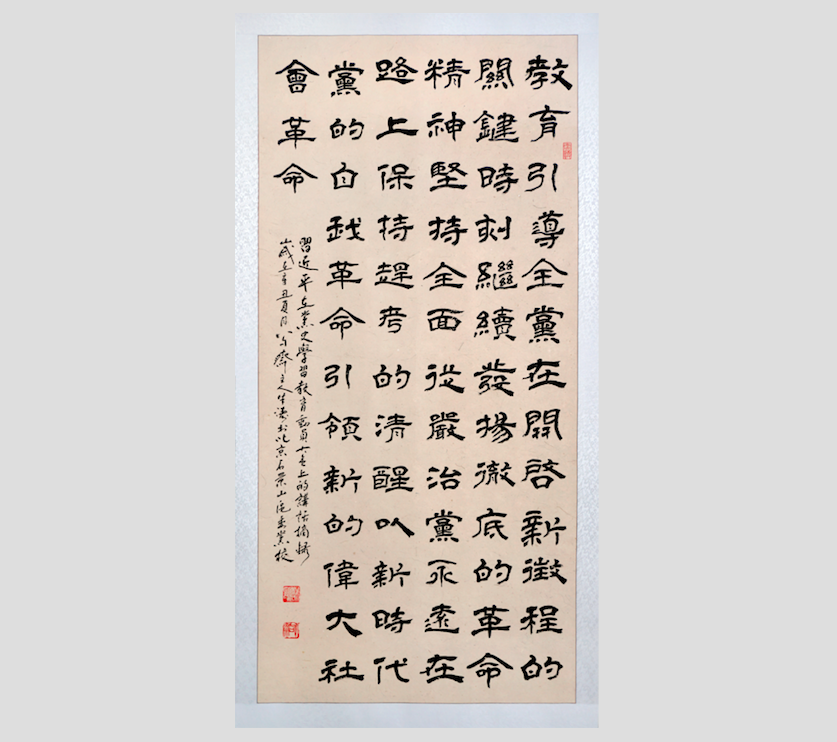 教育引導全黨在開啓新徵程的
關鍵時刻繼續發揚徹底的革命
精神堅持全面從嚴治黨永遠在
路上保持趕考的清醒以新時代
黨的自我革命引領新的偉大社
會革命
習近平在黨史學習教育動員大會上的講話摘録
歲在辛丑夏月齋主人書北京石景山區委黨校